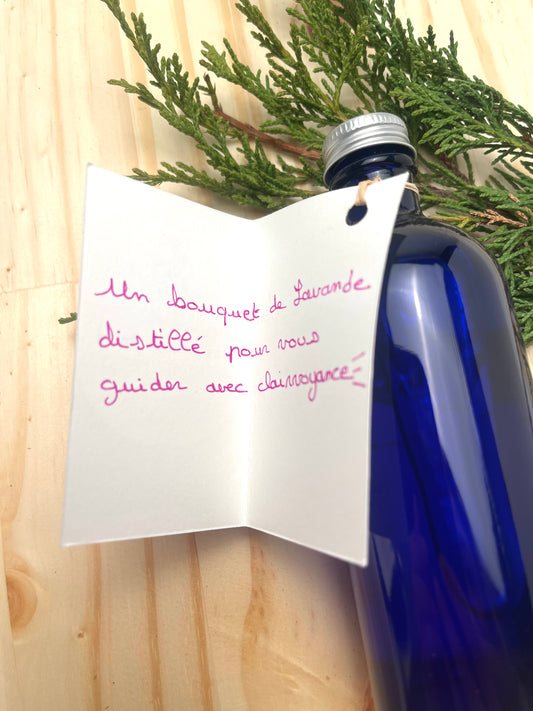 Un bouquet de Lavande
distillé pour vous
guider avec clairvoyance